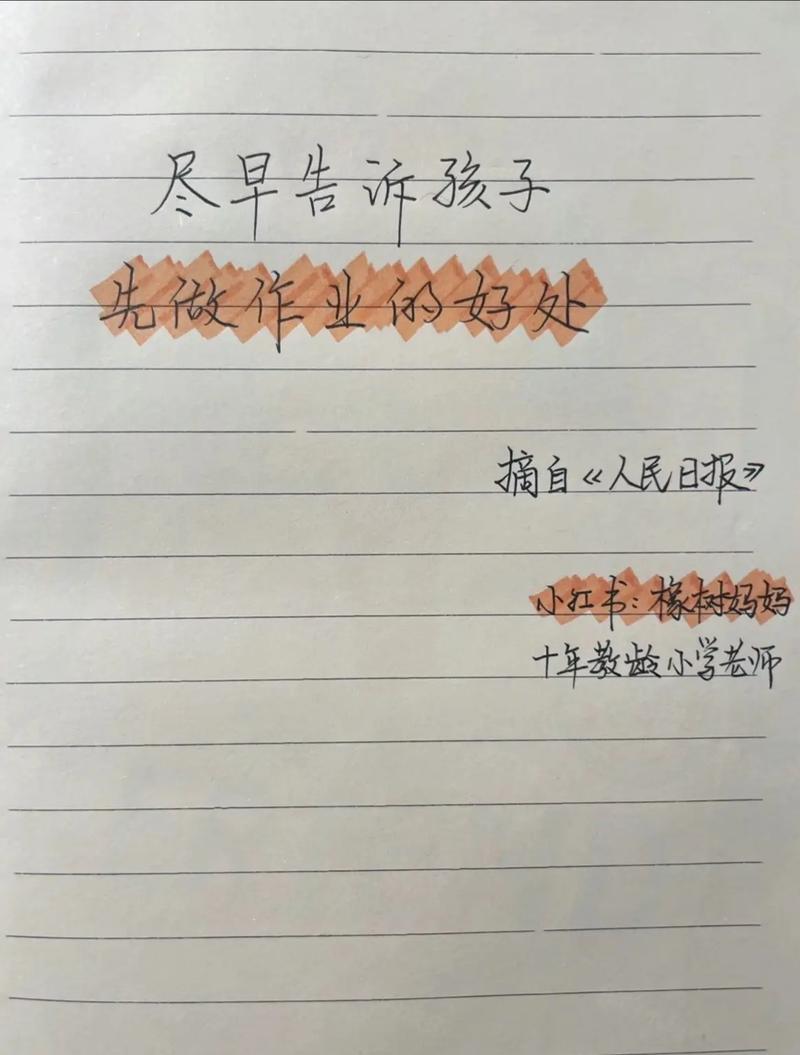 尽早告诉孩子
先做作业的好处
摘自《人民日报》
小红书：橡树妈妈
十年教龄小学老师